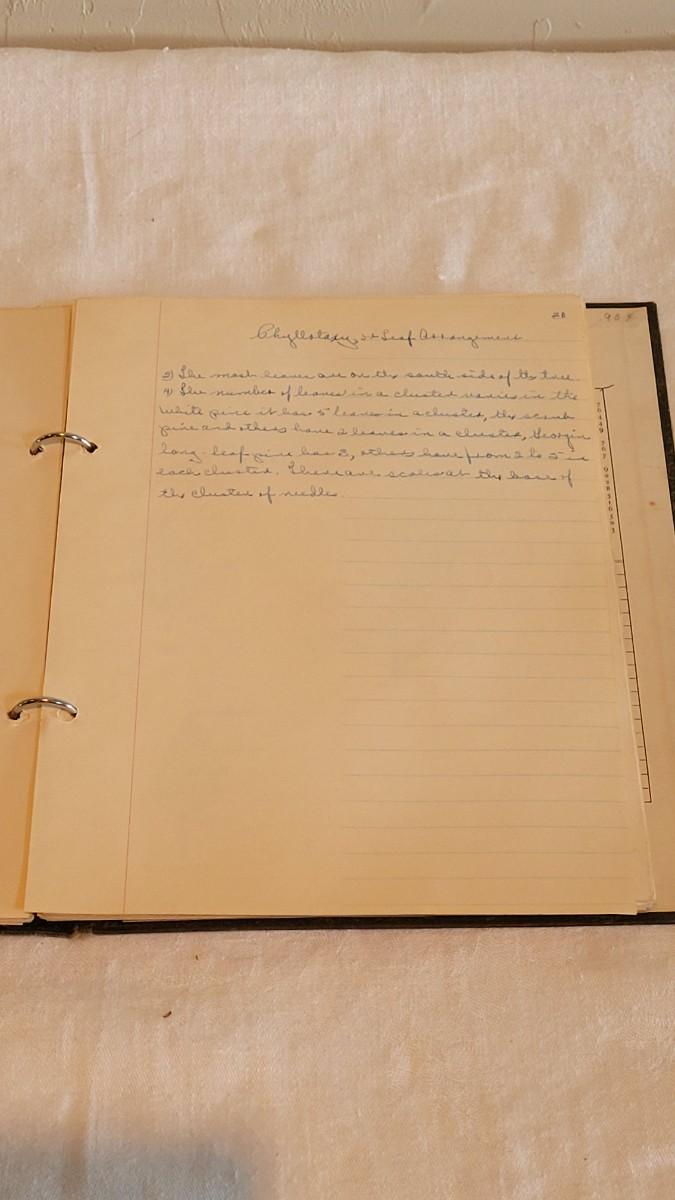 28
Phyllotaxy or Leaf Arrangement
3) The most leaves are on the south side of the tree.
4) The number of leaves in a cluster varies in the
white pine it has 5 leaves in a cluster, the scrub
pine and others have 2 leaves in a cluster, Georgia
long-leaf pine has 3, others have from 2 to 5 in
each cluster. There are scales at the base of
the cluster of needles.